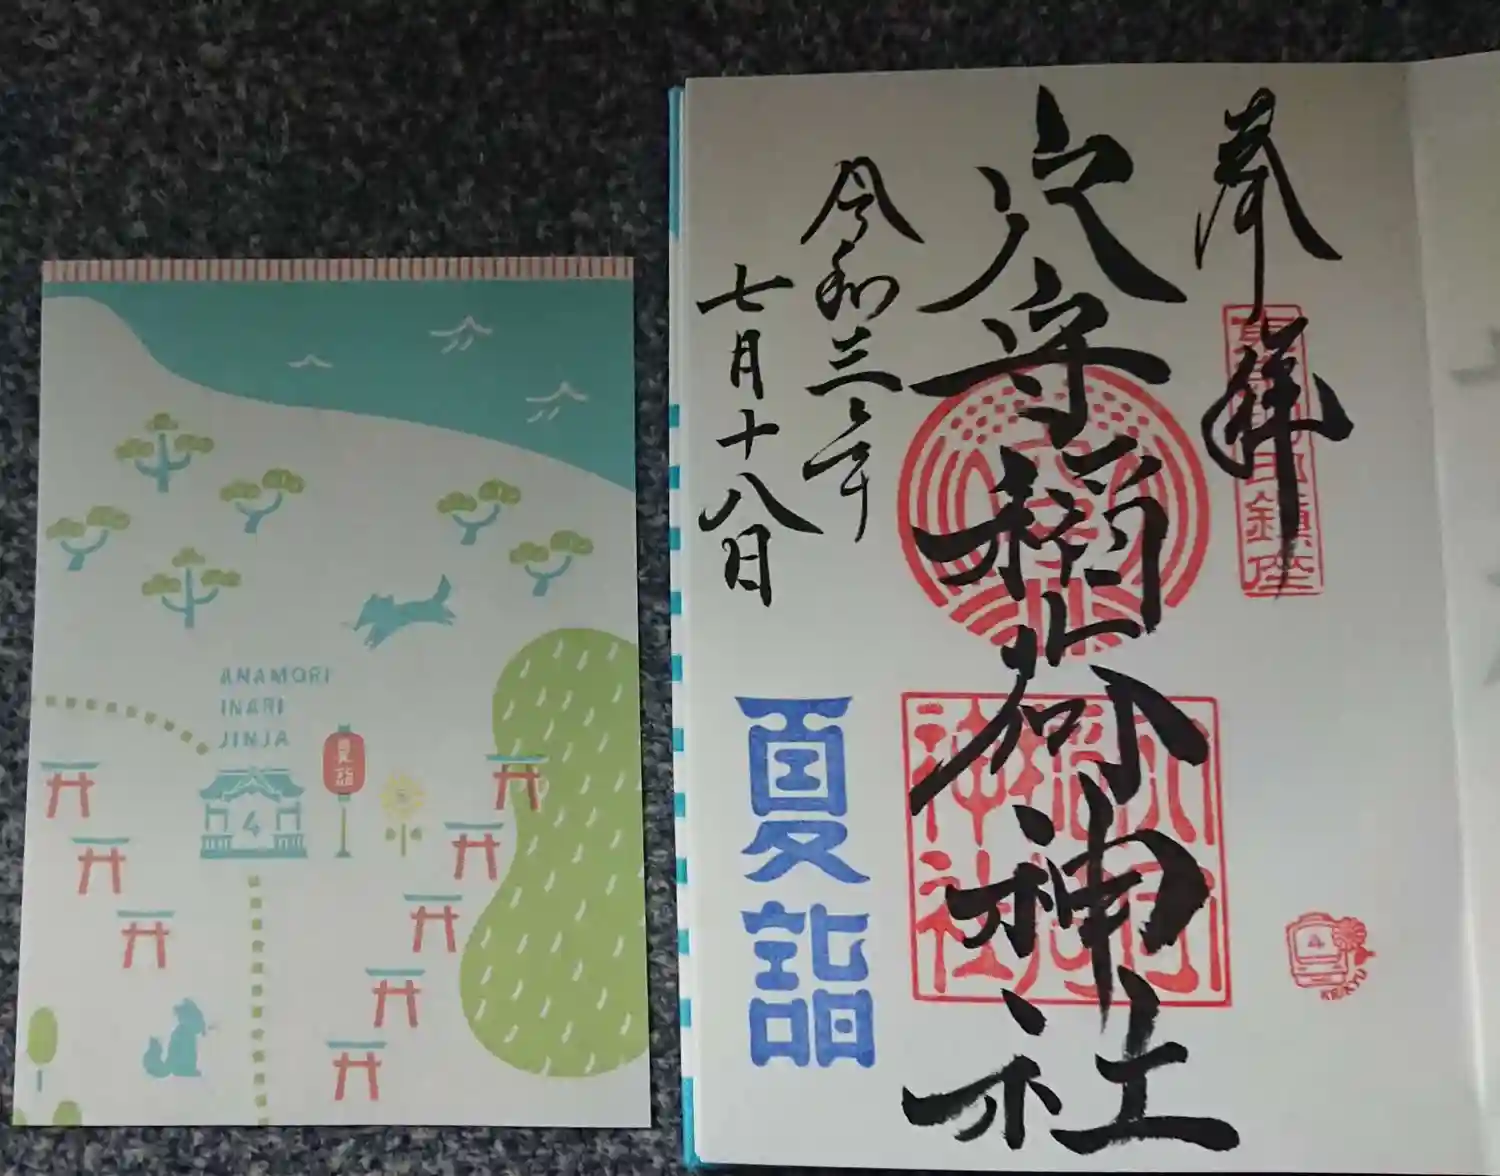 ANAMORI
INARI
JINJA
夏詣
4
奉拝
穴守稲荷神社
令和三年
七月十八日
夏詣
穴守稲荷神社
鎮座
4
KEIKYU